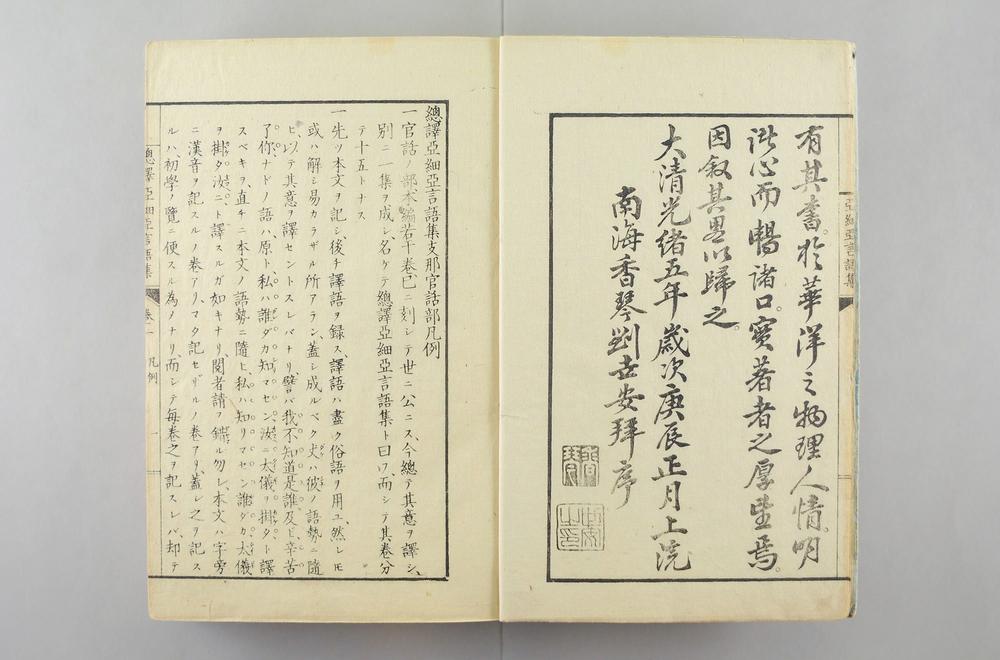 有其書於華洋之物理人情明
訛心而暢諸口寔著者之厚望焉
因叙其畧以歸之
大清光緒五年歲次庚辰正月上浣
南海香琴劉世安拜序
亞細亞言語集
總譯亞細亞言語集支那官話部凡例
一官話ノ部本編若干卷已ニ刻シテ世ニ公ニス、今總テ其意ヲ譯シ、
別ニ一集ヲ成シ名ケテ總譯亞細亞言語集ト曰フ、而シテ其卷分
テ十五トナス
一先ツ本文ヲ記シ後チ譯語ヲ録ス、譯語ハ盡ク俗語ヲ用ユ、然レ𪜈
或ハ解シ易カラザル所アラン、蓋シ成ルベク丈ハ彼ノ語勢ニ隨
ヒ、以テ其意ヲ譯セントスレバナリ、譬バ我不知道是誰及ヒ辛苦
了你ナドノ語ハ、原ト私ハ誰ダカ知マセン、汝ニ大儀ヲ掛タト譯
スベキヲ、直チニ本文ノ語勢ニ隨ヒ、私ハ知リマセン誰ダカ、大儀
ヲ掛タ汝ニト譯スルガ如キナリ、閲者請フ錯ル勿レ、本文ハ字旁
ニ漢音ヲ記スルノ卷アリ、マタ記セザルノ卷アリ、蓋シ之ヲ記ス
ルハ、初學ノ覽ニ便スル為メナリ、而シテ每卷之ヲ記スレバ、却テ
總譯亞細亞言語集 卷一 凡例 一